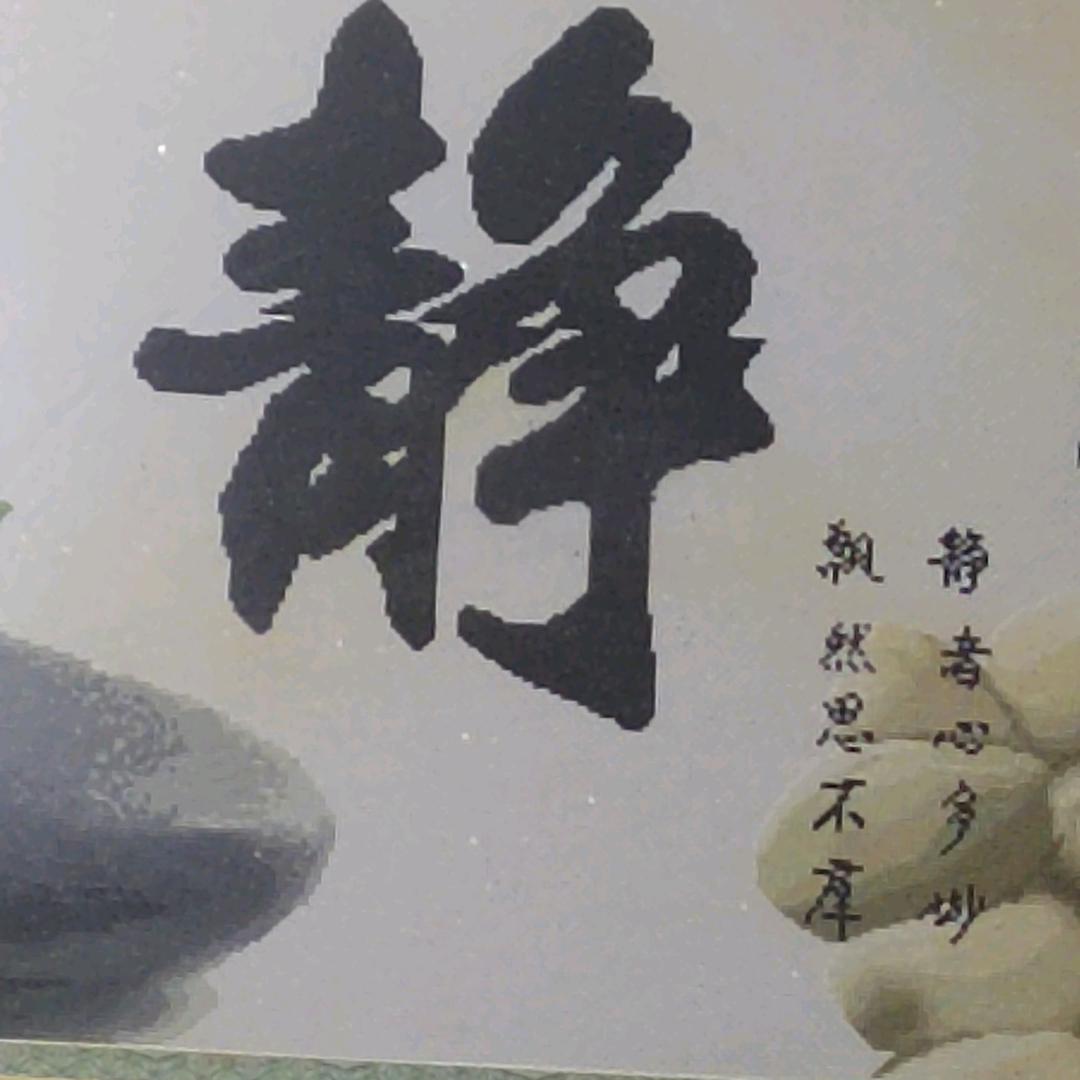 静
静者心多妙
飘然思不羣